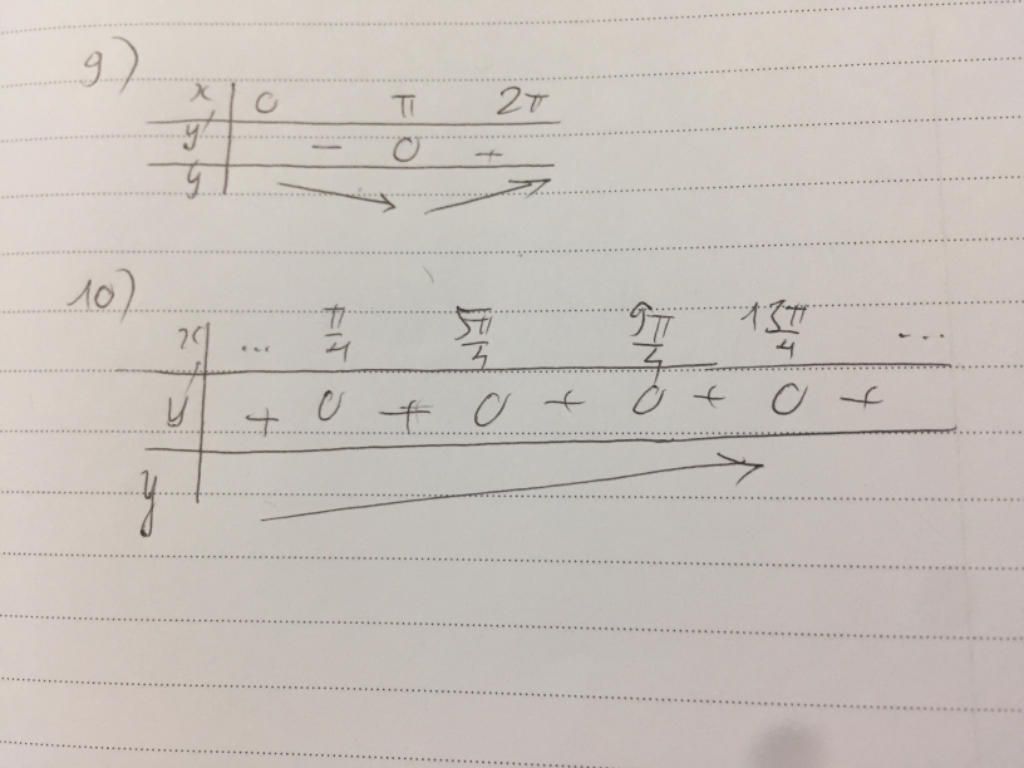 9)
x 0 π 2π
y' - 0 +
y ↘ ↗
10)
x ... π/4 5π/4 9π/4 13π/4 ...
y' + 0 + 0 + 0 + 0 +
y ↗